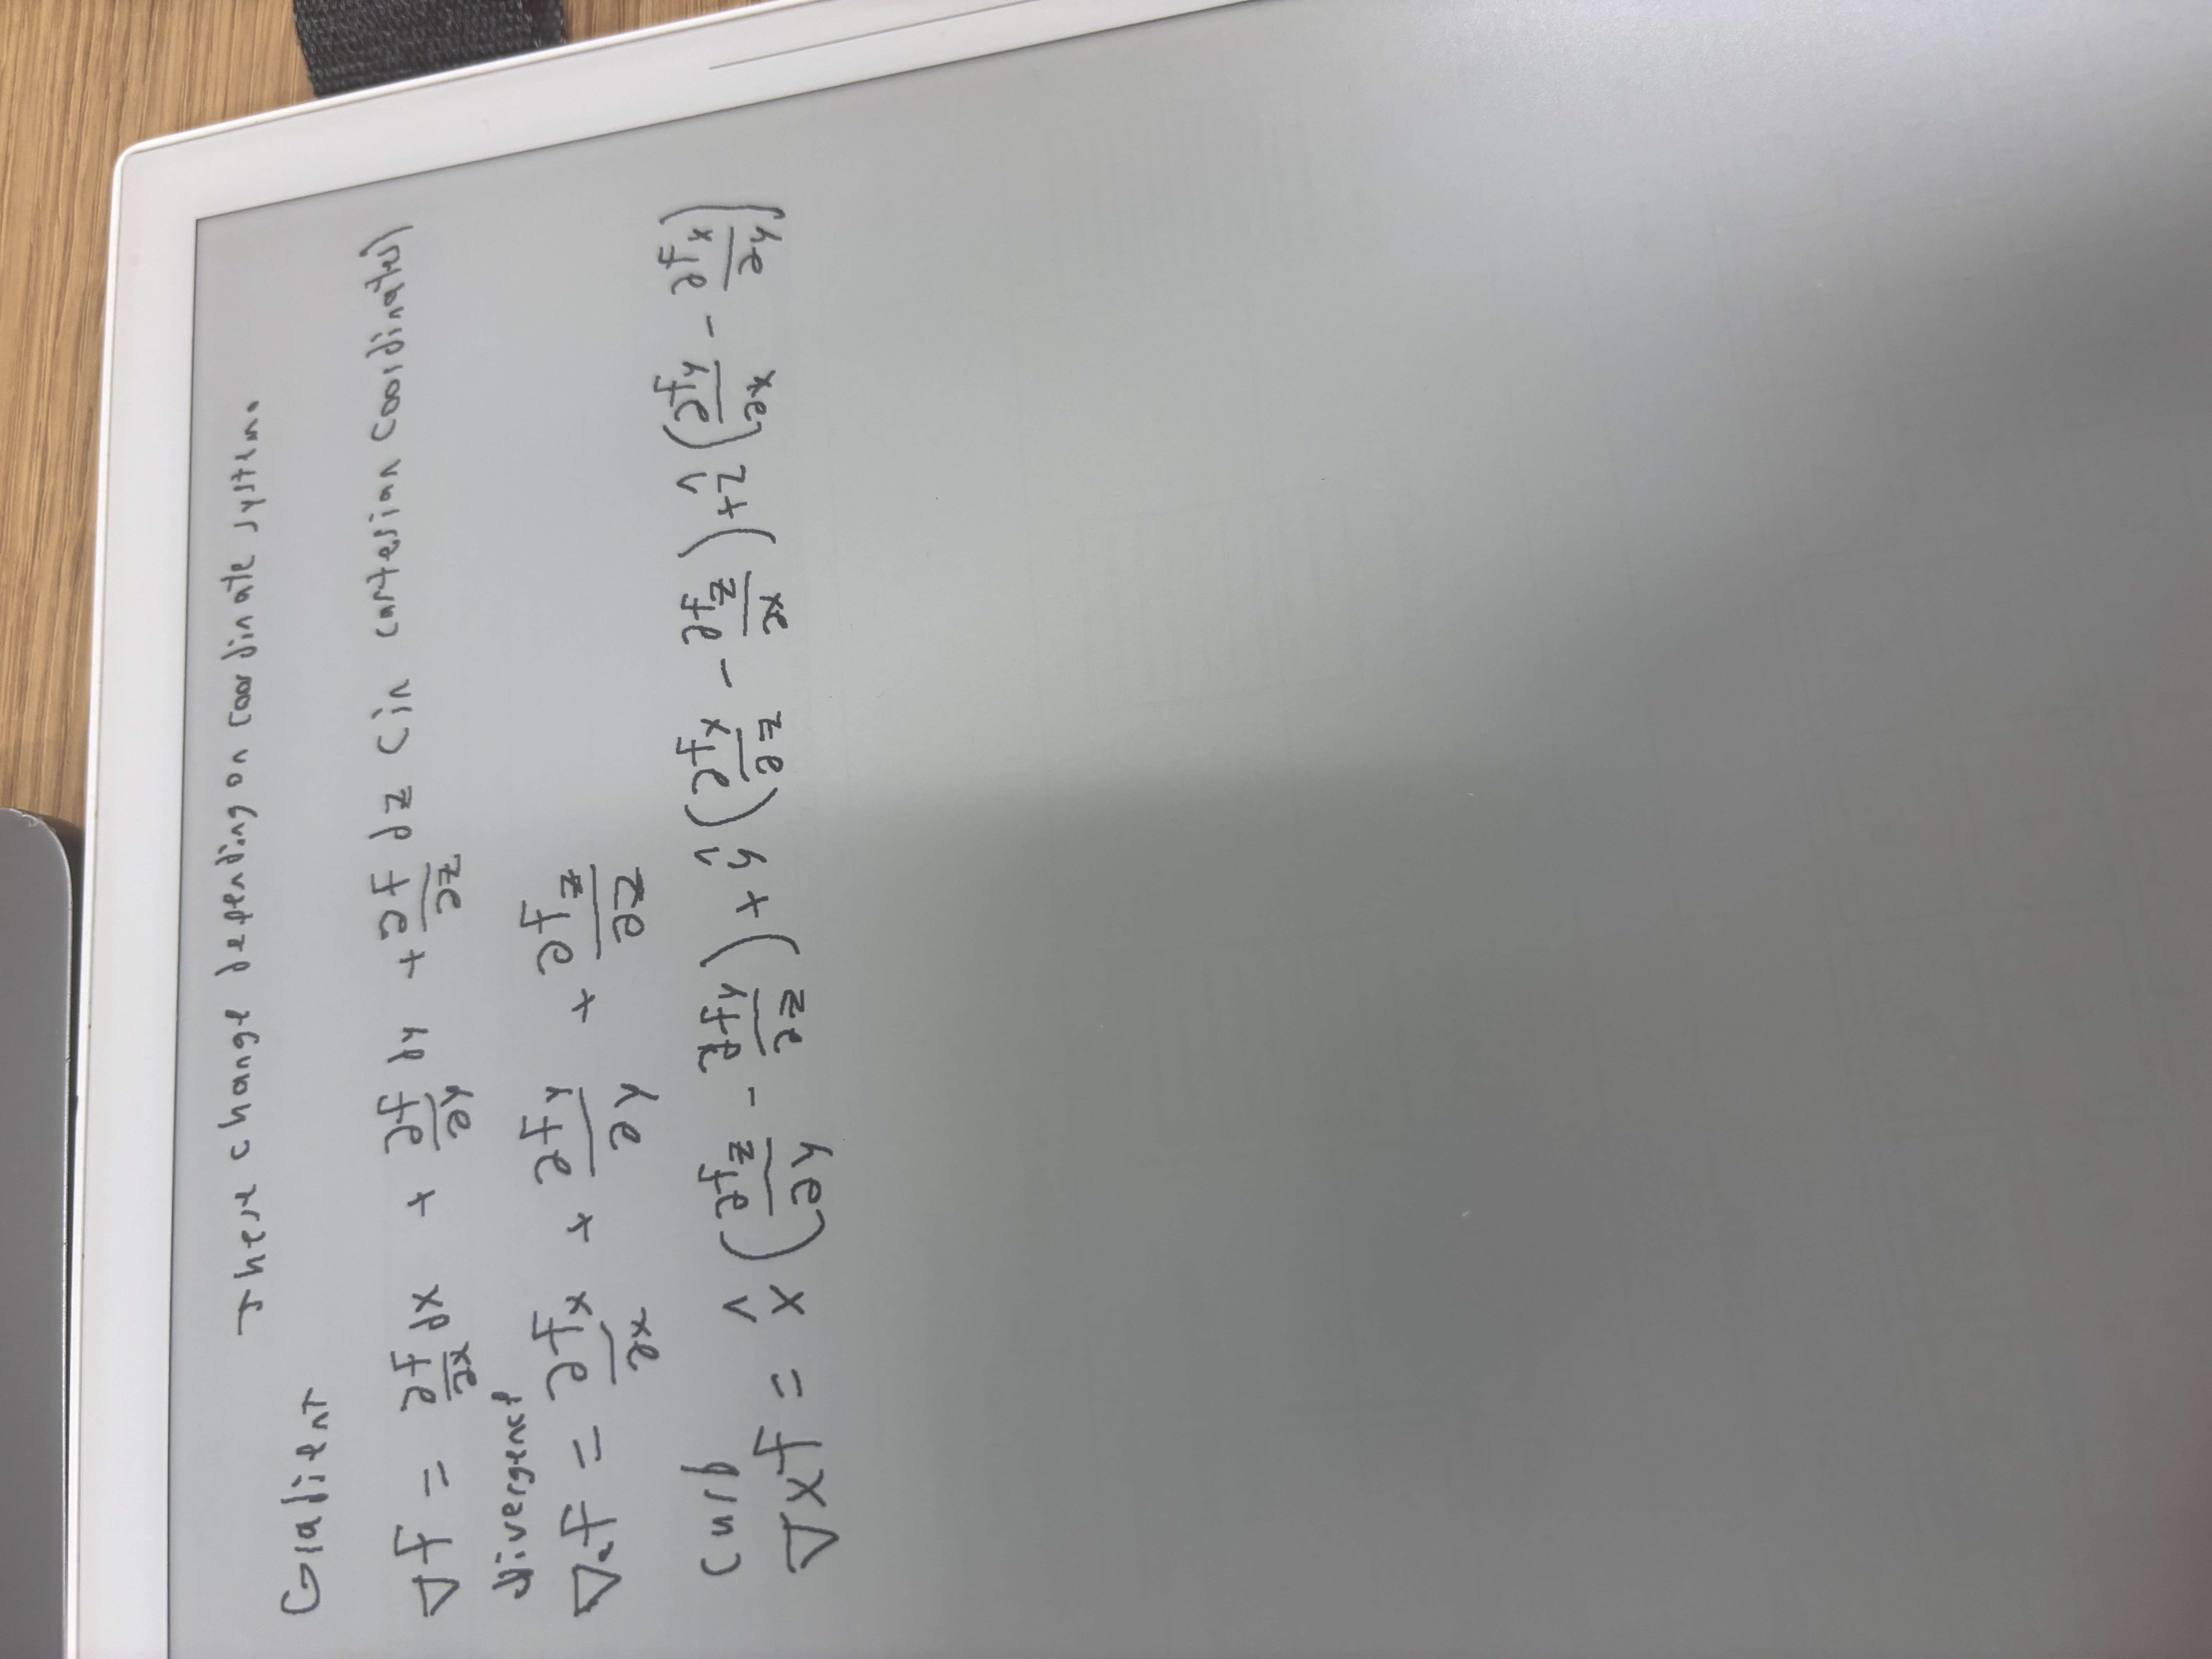 These change depending on coordinate system.
Gradient
∇f = ∂f/∂x dx + ∂f/∂y dy + ∂f/∂z dz (in cartesian coordinates)
divergence
∇·f = ∂fx/∂x + ∂fy/∂y + ∂fz/∂z
curb
∇xf = x̂ (∂fz/∂y - ∂fy/∂z) + ŷ (∂fx/∂z - ∂fz/∂x) + ẑ (∂fy/∂x - ∂fx/∂y)